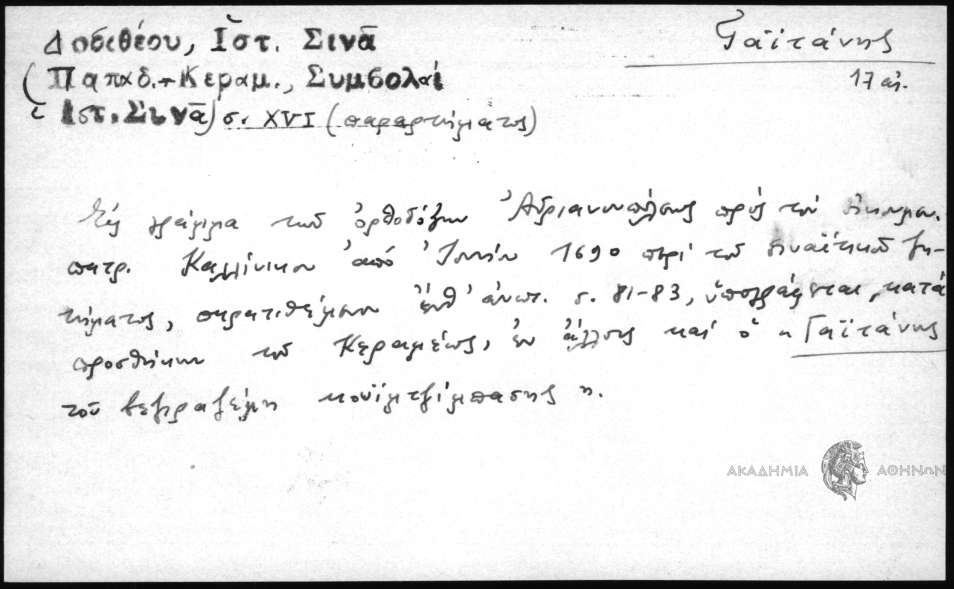 Δοσιθέου, Ἱστ. Σινᾶ
Γαϊτάνης
(Παπαδ.-Κεραμ., Συμβολαί
17 αἰ.
Ἱστ. Σινᾶ) σ. XVI (παραρτήματος)
Εἰς γράμμα τῶν ὀρθοδόξων Ἀδριανουπόλεως πρὸς τὸν οἰκουμ.
πατρ. Καλλίνικον ἀπὸ Ἰουνίου 1690 περὶ τοῦ σιναϊτικοῦ ζη-
τήματος, παρατιθέμενον ἐνθ' ἀνωτ. σ. 81-83, ὑπογράφεται, κατὰ
προσθήκην τοῦ Κεραμέως, ἐν ἄλλοις καὶ ὁ «Γαϊτάνης
τοῦ κουϊμτζίμπασης».
ΑΚΑΔΗΜΙΑ ΑΘΗΝΩΝ